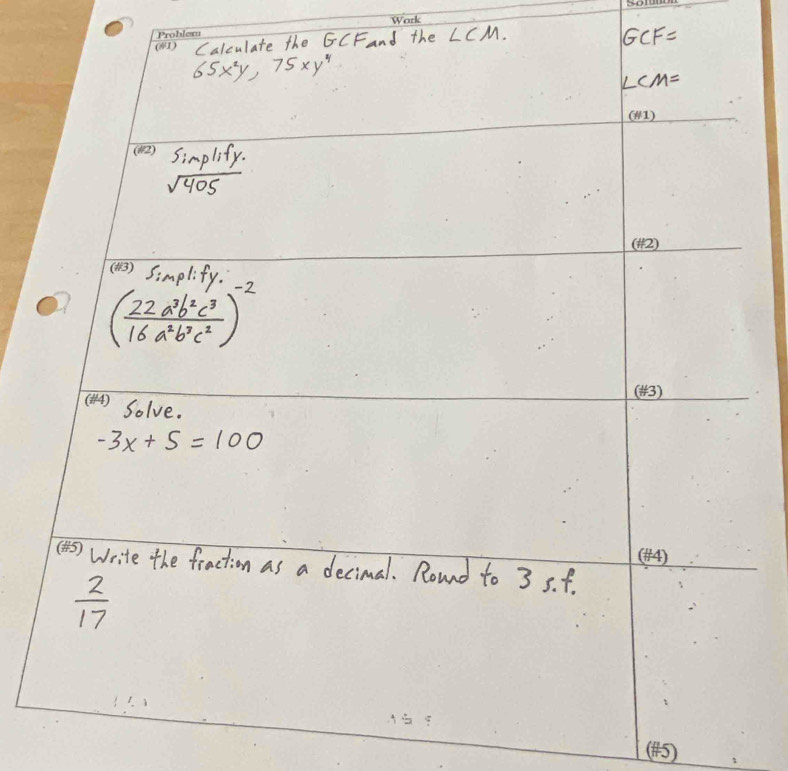 Problem Work Solution
(#1) Calculate the GCF and the LCM. GCF=
65x²y, 75xy⁴
LCM=
(#1)
(#2) Simplify.
√405
(#2)
(#3) Simplify.
(22a³b²c³ / 16a²b³c²)⁻²
(#3)
(#4) Solve.
-3x + 5 = 100
(#4)
(#5) Write the fraction as a decimal. Round to 3 s.f.
2/17
(#5)